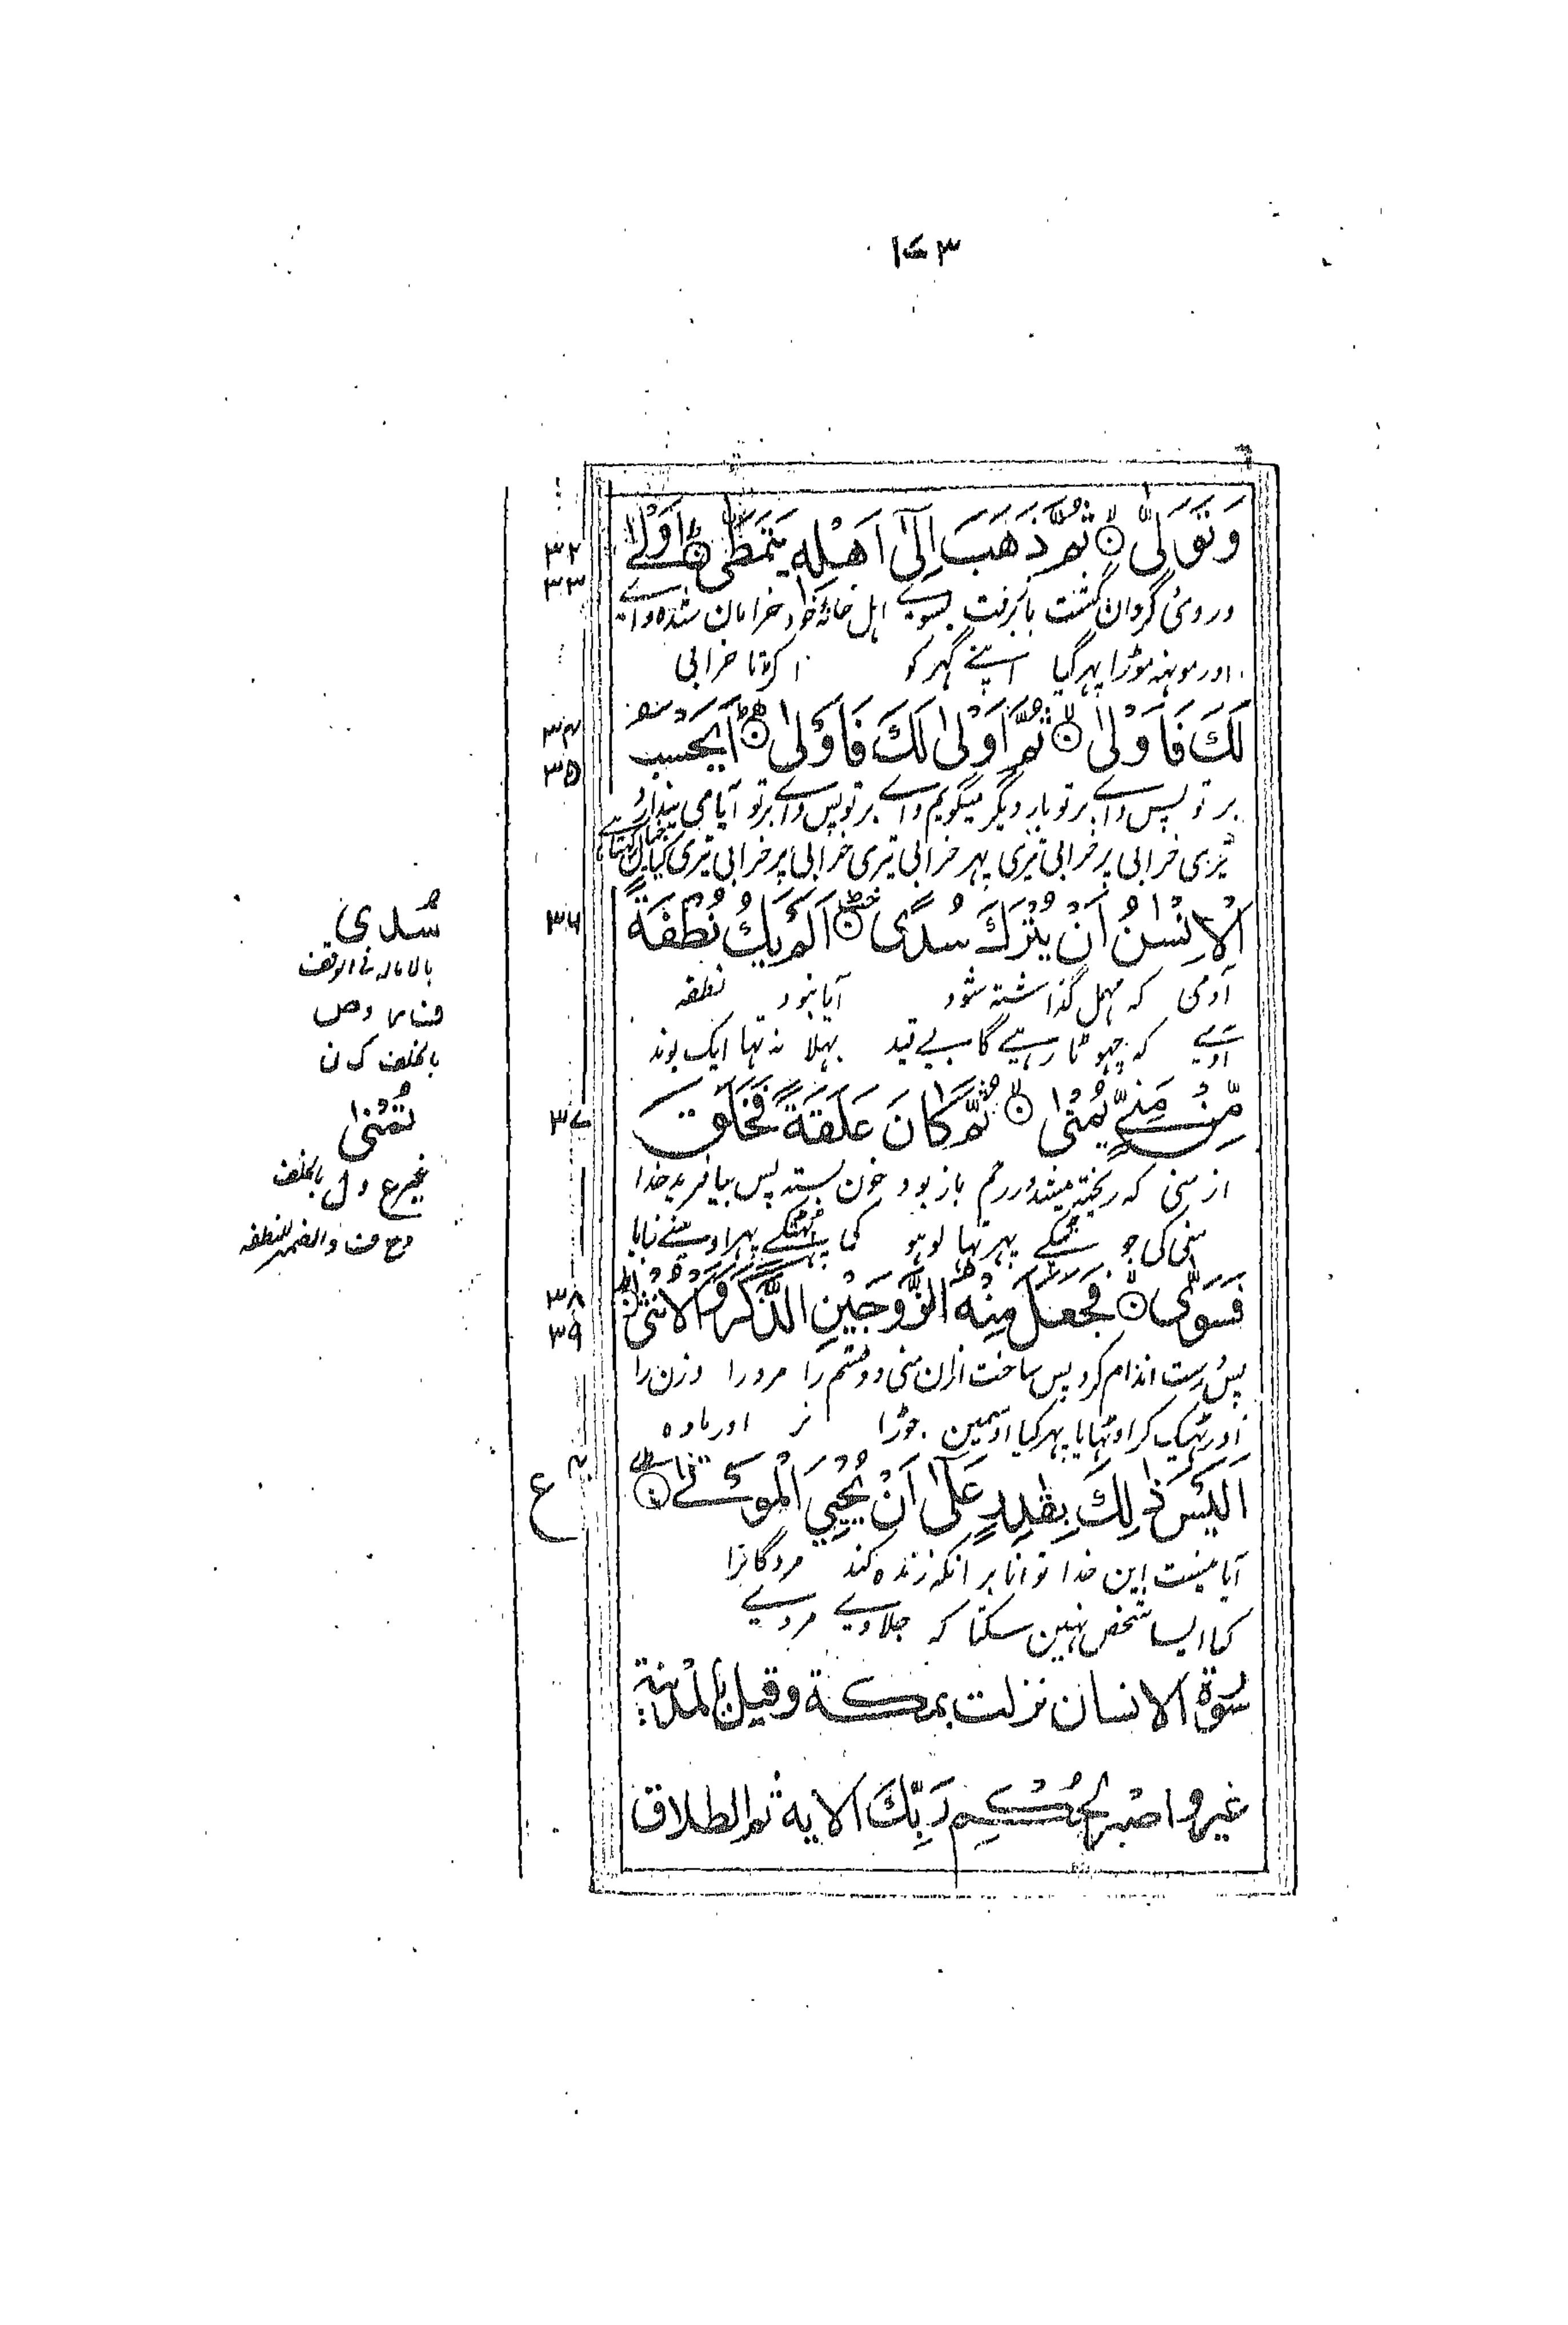 ۱۷۳
وَتَوَلّٰى ثُمَّ ذَهَبَ اِلٰٓى اَهْلِهٖ يَتَمَطّٰى اَوْلٰى
۳۲
۳۳
وروی گردان گشت باز رفت بسوے اهل خانهٔ خود خرامان شده واے
اور مونهه موڑا پهر گیا اپنے گهر کو اکڑتا خرابی
لَكَ فَاَوْلٰى ثُمَّ اَوْلٰى لَكَ فَاَوْلٰى اَيَحْسَبُ
۳۴
۳۵
بر تو پس واے بر تو بار دیگر میگویم واے بر تو پس واے بر تو آیا می پندارد
تیری خرابی پر خرابی تیری پهر خرابی تیری خرابی پر خرابی تیری کیا خیال رکهتا ہے
الْاِنْسٰنُ اَنْ يُتْرَكَ سُدًى اَلَمْ يَكُ نُطْفَةً
۳۶
آدمی که مهمل گذاشته شود آیا نبود نطفه
آدمے که چهوٹا رہے گا بے قید بهلا نه تها ایک بوند
مِّنْ مَنِيٍّ يُمْنٰى ثُمَّ كَانَ عَلَقَةً فَخَلَقَ
۳۷
از منی که ریخته میشد در رحم باز بود خون بسته پس بیافرید خدا
منی کی جو ٹپکے پهر تها لوہو کی پهٹکے پهر اوسنے بنایا
فَسَوّٰى فَجَعَلَ مِنْهُ الزَّوْجَيْنِ الذَّكَرَ وَالْاُنْثٰى
۳۸
۳۹
پس درست اندام کرد پس ساخت ازان منی دو قسم را مرد را و زن را
اور ٹهیک کر اوٹهایا پهر کیا اوسمین جوڑا نر اور ماده
اَلَيْسَ ذٰلِكَ بِقٰدِرٍ عَلٰٓى اَنْ يُّحْيِيَ الْمَوْتٰى
ع
آیا نیست این خدا توانا بر انکه زنده کند مردگانرا
کیا ایسا شخص نہین سکتا که جلاوے مردے
سُورة الانسان نزلت بمكة وقيل بالمدينة
غير واصبر لحُكمِ رَبِّكَ الاية ثم الطلاق
سُدى
بالاماله فی الوقف
بالخلف ک ن
تُمْنٰى
غیر ع و ل بالخلف
والضمیر للنطفه